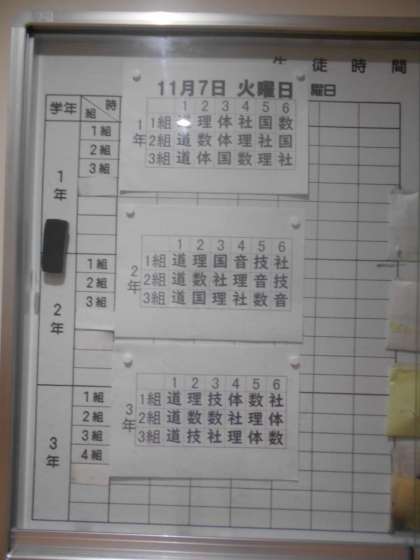 徒時間
11月7日 火曜日 曜日
学年 組 時
1年
1組
2組
3組
2年
1組
2組
3組
3年
1組
2組
3組
4組
1年
1 2 3 4 5 6
1組 道 理 体 社 国 数
2組 道 数 体 理 社 国
3組 道 体 国 数 理 社
2年
1 2 3 4 5 6
1組 道 理 国 音 技 社
2組 道 数 社 理 音 技
3組 道 国 理 社 数 音
3年
1 2 3 4 5 6
1組 道 理 技 体 数 社
2組 道 数 数 社 理 体
3組 道 技 社 理 体 数